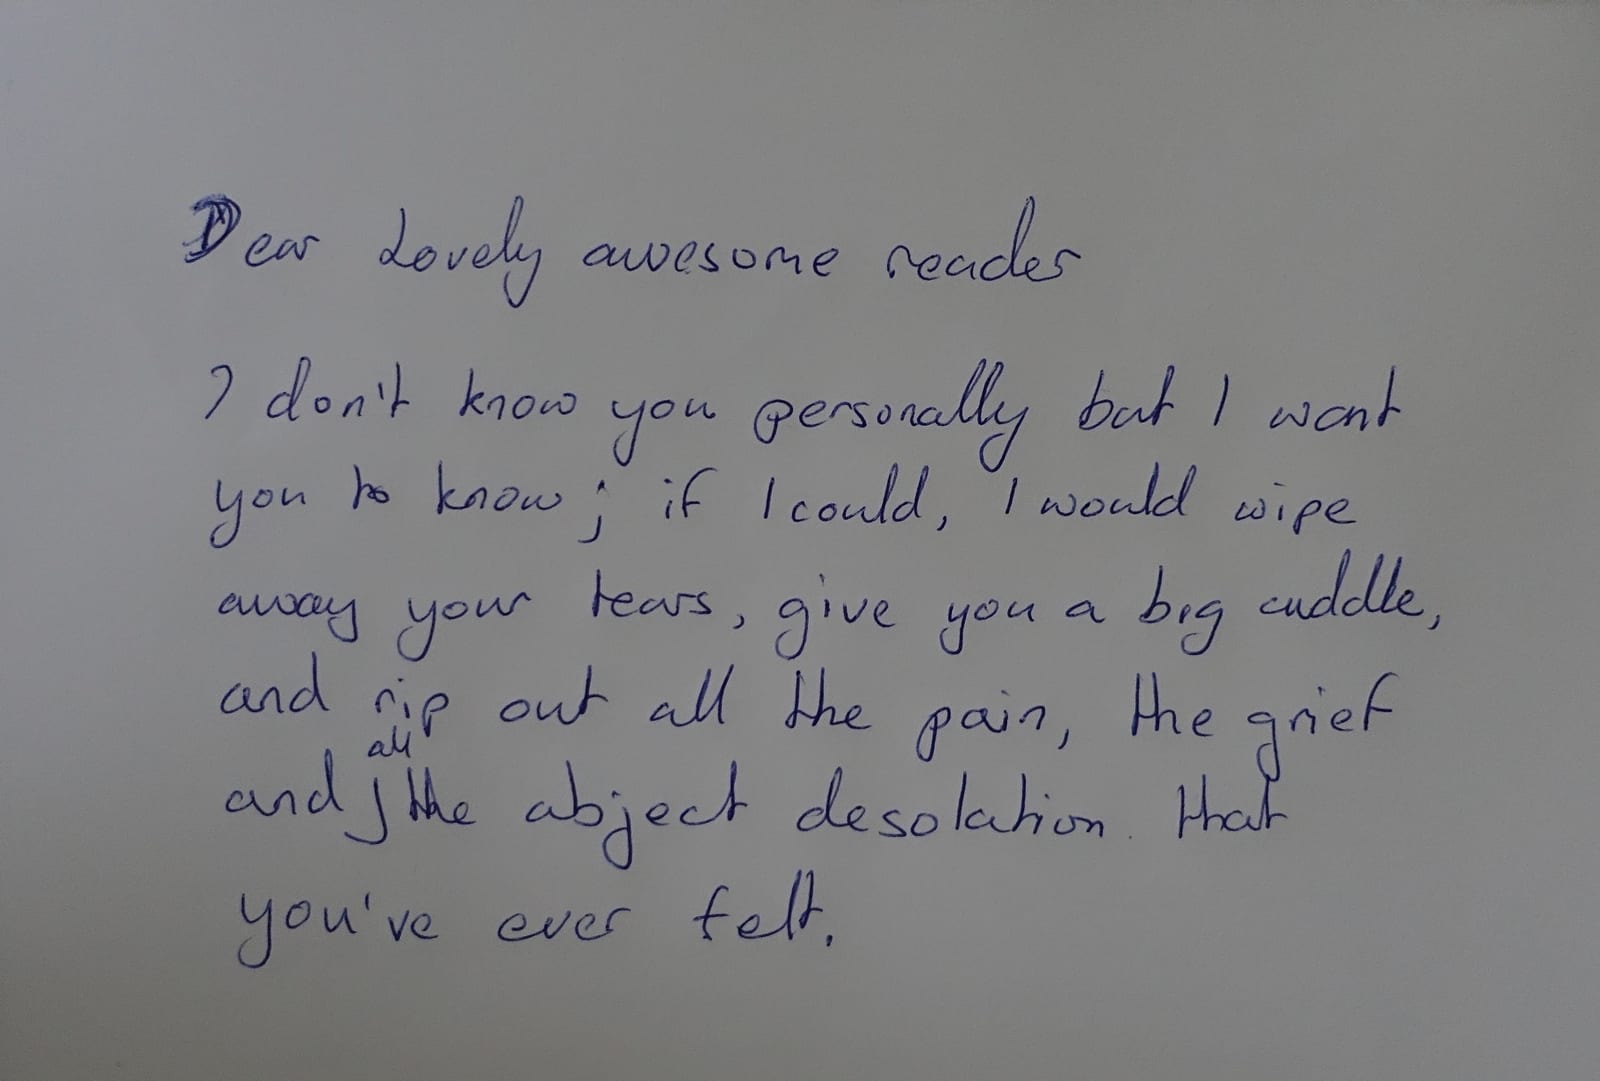 Dear Lovely awesome reader
I don't know you personally but I want
you to know; if I could, I would wipe
away your tears, give you a big cuddle,
and rip out all the pain, the grief
and all the abject desolation that
you've ever felt.